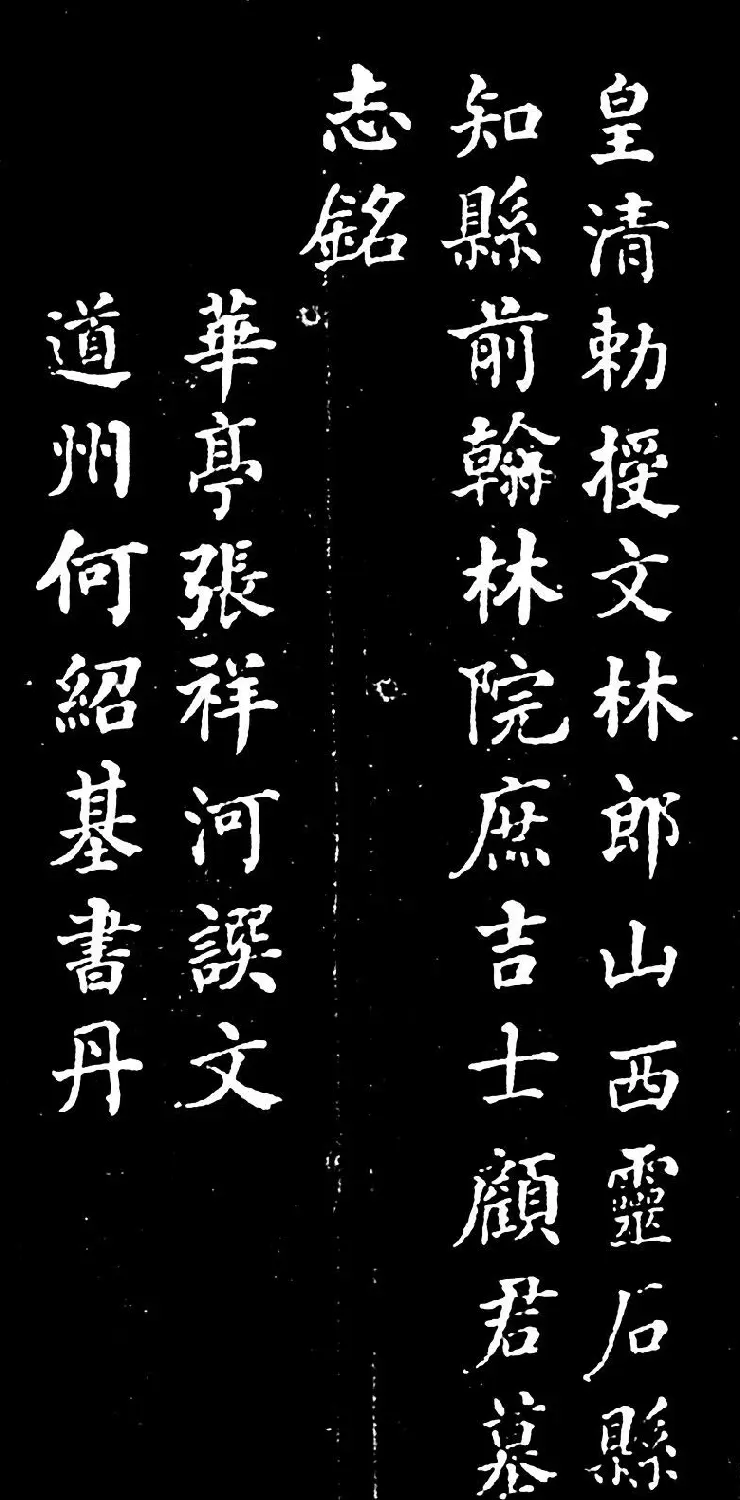 皇清勅授文林郎山西靈石縣
知縣前翰林院庶吉士顧君墓
志銘
華亭張祥河譔文
道州何紹基書丹